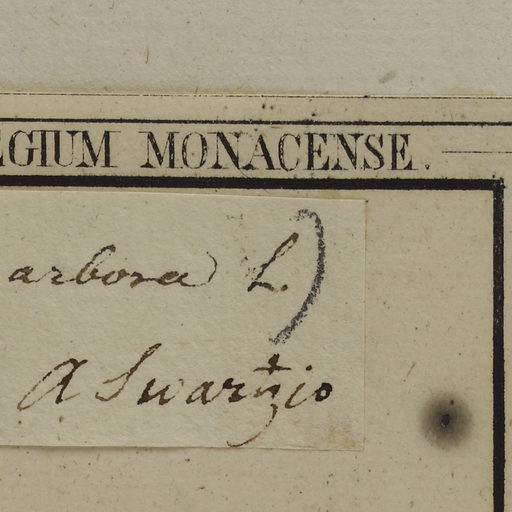 EGIUM MONACENSE.
arborea L. )
A Swartzio